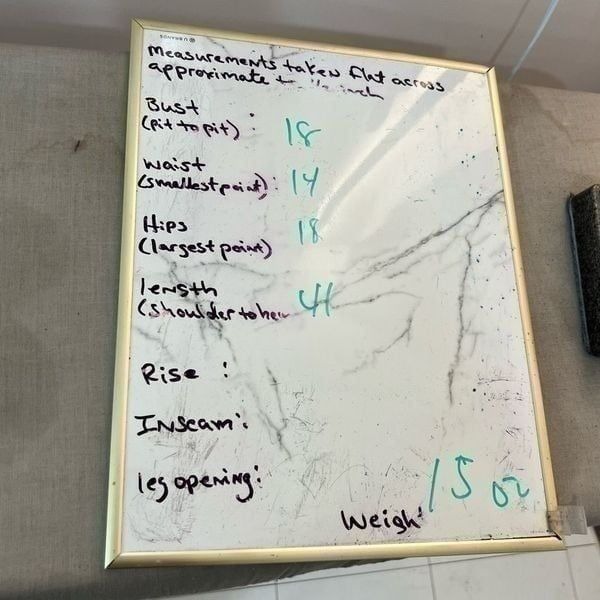 U BRANDS
measurements taken flat across
approximate to 1/2 inch
Bust
(pit to pit) : 18
Waist
(smallest point) : 14
Hips
(largest point) 18
length
(shoulder to hem 41
Rise :
Inseam :
leg opening :
Weigh 15 oz